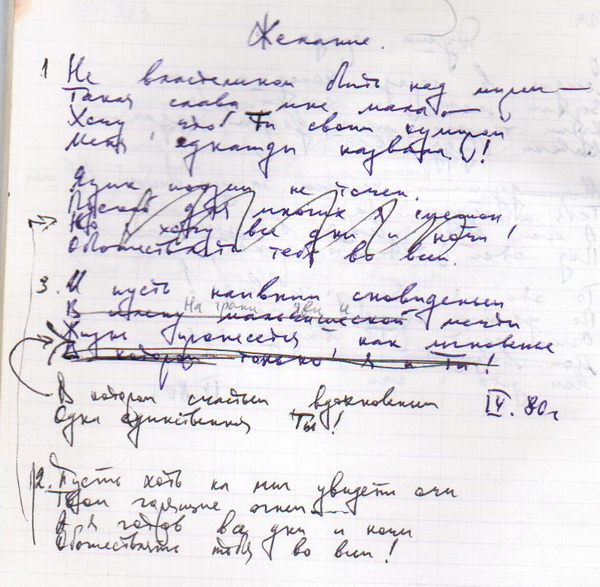 Желание.
1 Не властелином быть над миром —
Такая слава мне мала —
Хочу чтоб Ты своим кумиром
Меня однажды назвала!
Язык поэзии не точен.
Пускай для многих я смешон,
Но я хочу все дни и ночи
Обожествлять тебя во всём.
3. И пусть наивным сновиденьем
На грани яви и
В плену мальчишеской мечты
Жизнь пронесётся как мгновенье
В котором только Я и Ты!
В котором счастьем вдохновенным
Одна единственная Ты!
IV. 80г
2. Пусть хоть на миг увидеть очи
Твои горящие огнём
А я готов все дни и ночи
Обожествлять тебя во всём!